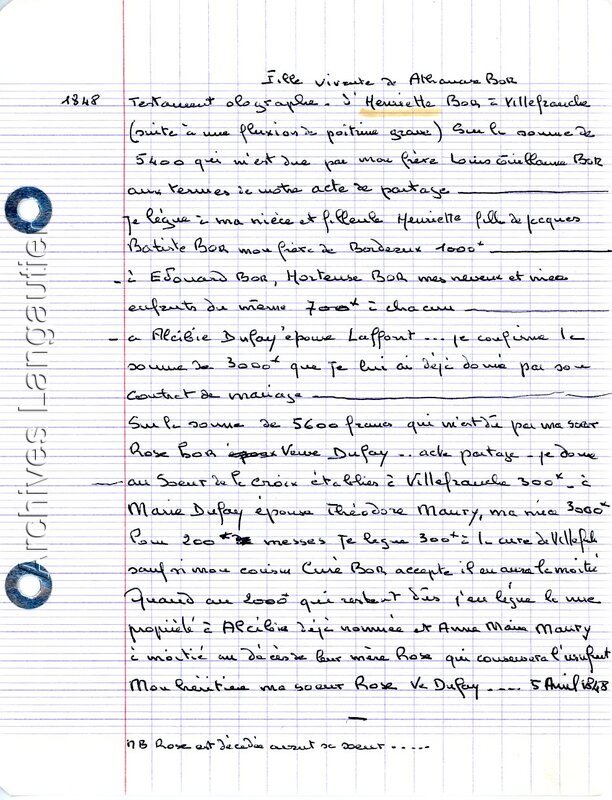 Fille vivente de Athanase BOR
1848 Testament olographe - d'Henriette BOR à Villefranche
(suite à une fluxion de poitrine grave) Sur la somme de
5400 qui m'est due par mon frère Louis Guillaume BOR
aux termes de notre acte de partage
Je lègue à ma nièce et filleule Henriette fille de Jacques
Batiste BOR mon frère de Bordeaux 1000ᶠ
- à Edouard BOR, Hortense BOR mes neveux et nièce
enfants du même 700ᶠ à chacun
- a Alcibie Dufay épouse Laffont ... je confirme la
somme de 3000ᶠ que je lui ai déjà donné par son
contrat de mariage
Sur la somme de 5600 francs qui m'est dû par ma sœur
Rose BOR Veuve Dufay .. acte partage - je donne
au Soeur de la Croix établies à Villefranche 300ᶠ - à
Marie Dufay épouse Théodore Maury, ma nièce 3000ᶠ
Pour 200ᶠ messes je lègue 300ᶠ à la cure de Villefch
sauf si mon cousin Curé BOR accepte il en aura la moitié
Quand au 2000ᶠ qui restent dûs j'en lègue la nue
propiété à Alcibie déjà nommée et Anne Marie Maury
à moitié au décès de leur mère Rose qui conservera l'usufruit
Mon héritière ma soeur Rose Ve Dufay .... 5 Avril 1848
NB Rose est décédée avant sa soeur .....
Archives Langautier